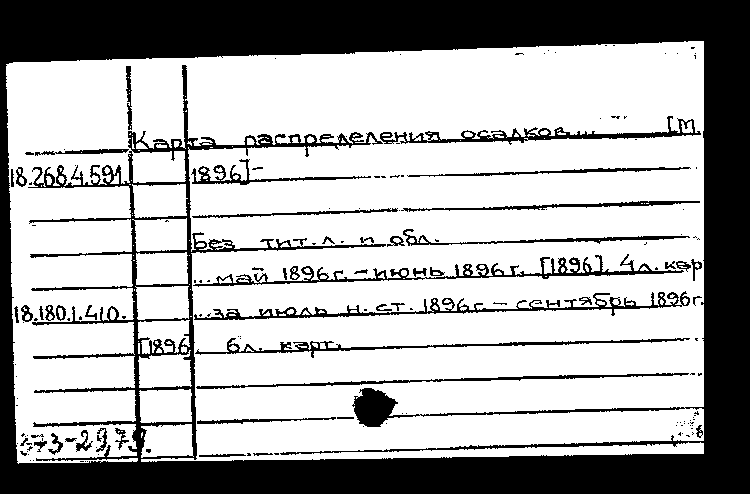 Карта распределения осадков... [М.,
18.268.4.591. 1896]-
Без тит. л. и обл.
...май 1896г.-июнь 1896г. [1896]. 4л. кар
18.180.1.410. ...за июль н.ст. 1896г.-сентябрь 1896г.
[1896]. 6л. карт.
373-29,79.